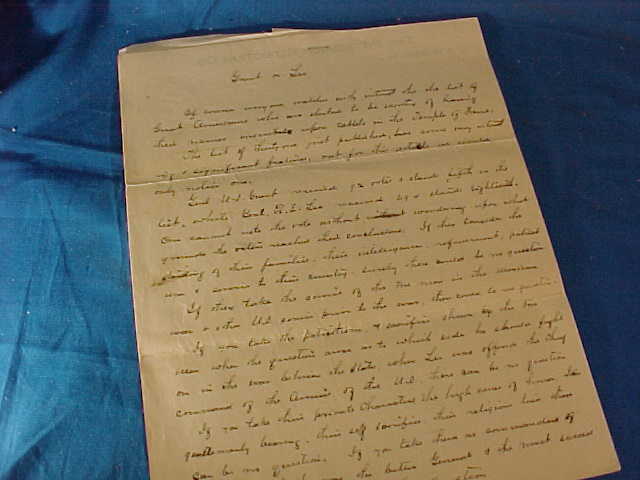 Grant or Lee
Of course everyone watches with interest the list of
Great Americans who are elected to be worthy of having
their names inscribed upon tablets in the Temple of Fame.
The list of thirty one just published, has some very interest
ing & significant features, but for this article we would
only notice one.
Genl U.S. Grant received 92 votes & stands in the
list, while Genl. R. E. Lee received 69 & stands
One cannot note the vote without wondering upon what
grounds the voters reached their conclusions. If they consider the
standing of their families, their intelligence, refinement,
& service to their country, surely there could be no question
If they take the service of the two men in the Mexican
war & other U.S. service prior to the war, there could be no question.
If you take the patriotism & sacrifice shown by the two
men when the question arose as to which side he should fight
on in the war between the States, when Lee was offered the Chief
command of the Armies of the U.S. there can be no question
If you take their private Characters, the high sense of honor, the
gentlemanly bearing, their self sacrifice, their religious lives there
can be no question. If you take them as commanders of
the better General & the most
question